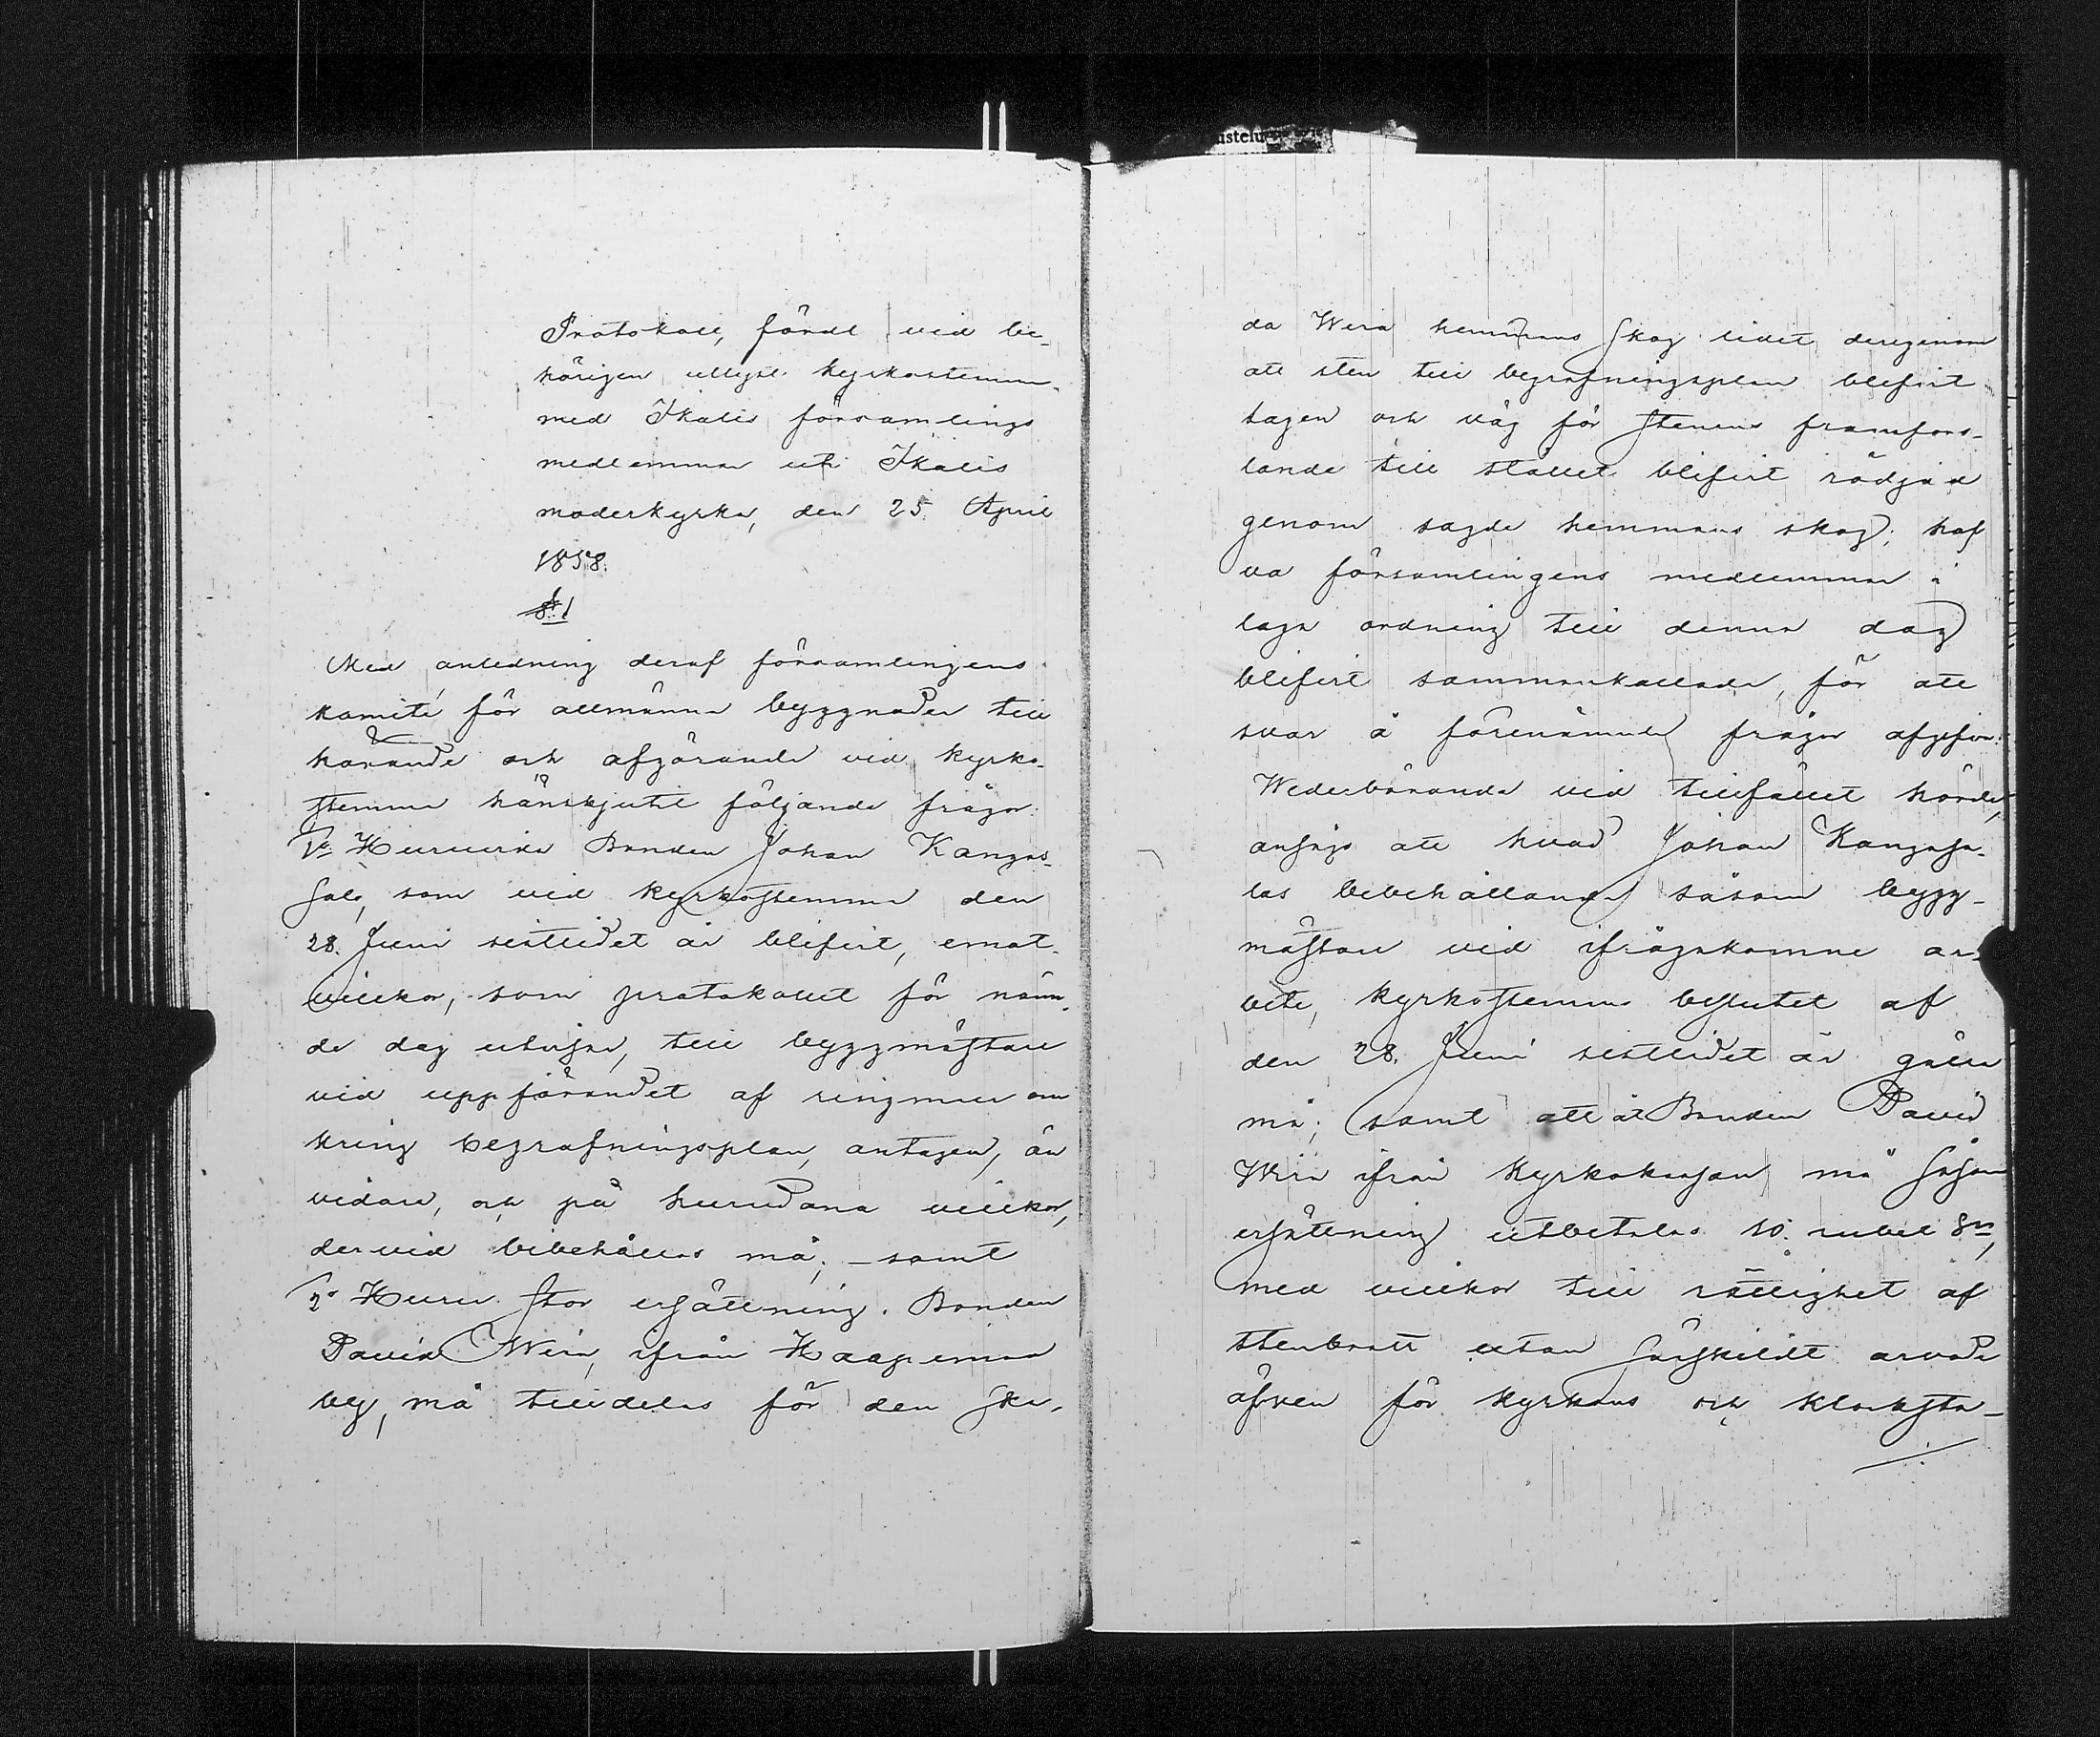 ustelu
Protokoll, fördt vid be-
hörigen utlyst kyrkostemma
med Ikalis församlings
medlemmar uti Ikalis
moderkyrka, den 25 April
1858.
§ 1
Med anledning deraf församlingens
komité för allmänna byggnader till
hörande och afgörande vid kyrko-
stemma hänskjutit följande frågor:
1o Huruvida Bonden Johan Kangas-
salo, som vid kyrkostemma den
28. Juni sistledet år blifvit, emot
villkor, som protokollet för nämn-
de dag utvisar, till byggmästare
vid uppförandet af ringmur om
kring begrafningsplan, antagen, än
vidare, och på hurudana villkor,
dervid bibehållas må; – samt
2o Huru stor ersättning Bonden
David Wira, ifrån Haapimaa
by, må tilldelas för den ska-
da Wira hemmans skog lidet derigenom
att sten till begrafningsplan blifvit
tagen och väg för stenens framfors-
lande till stället blifvit rödjad
genom sagde hemmans skog; haf
va församlingens medlemmar i
laga ordning till denna dag
blifvit sammankallade, för att
svar å förenämnde frågor afgifva.
Wederbörande vid tillfället hörde,
ansågo att hvad Johan Kangasa-
los bibehållande såsom bygg-
mästare vid ifrågakomne ar-
bete, kyrkostemmo beslutet af
den 28. Juni sistledet år gälla
må; samt att åt Bonden David
Wira ifrån Kyrkokassan må såsom
ersättning utbetalas 10. rubel Sr,
med villkor till rättighet af
stenbrott utan särskildt arvode
äfven för kyrkans och klocksta-